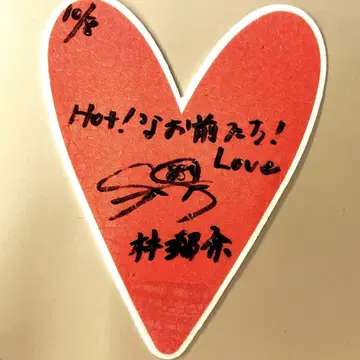 10/8
Hot!なお前たち!
Love
林翔奈